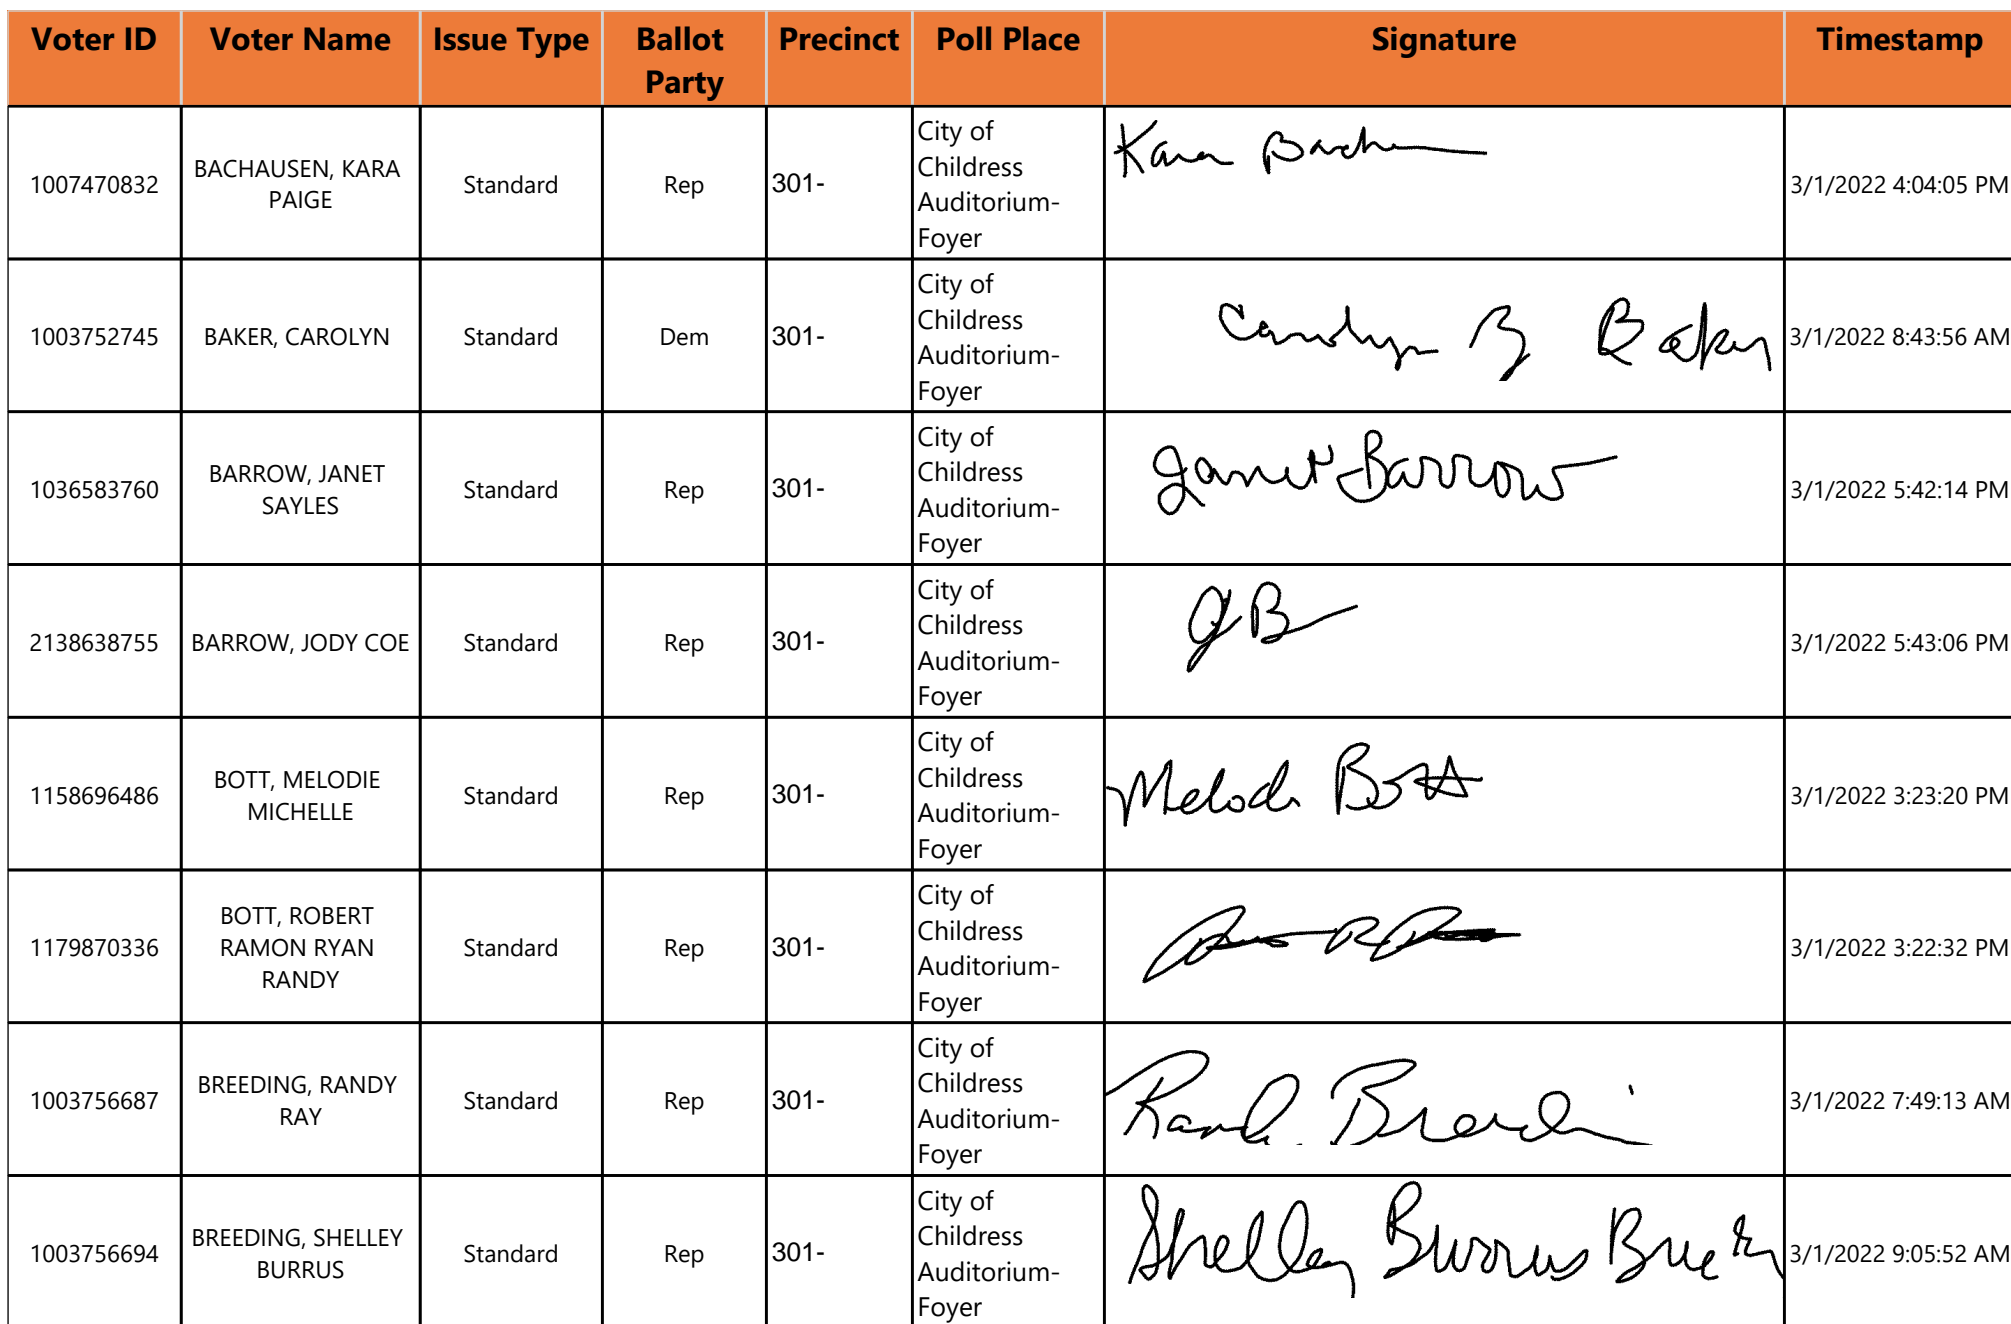 Voter ID Voter Name Issue Type Ballot Party Precinct Poll Place Signature Timestamp
1007470832 BACHAUSEN, KARA PAIGE Standard Rep 301- City of Childress Auditorium-Foyer Kara 3/1/2022 4:04:05 PM
1003752745 BAKER, CAROLYN Standard Dem 301- City of Childress Auditorium-Foyer Carolyn B Baker 3/1/2022 8:43:56 AM
1036583760 BARROW, JANET SAYLES Standard Rep 301- City of Childress Auditorium-Foyer Janet Barrow 3/1/2022 5:42:14 PM
2138638755 BARROW, JODY COE Standard Rep 301- City of Childress Auditorium-Foyer JB 3/1/2022 5:43:06 PM
1158696486 BOTT, MELODIE MICHELLE Standard Rep 301- City of Childress Auditorium-Foyer Melodi Bott 3/1/2022 3:23:20 PM
1179870336 BOTT, ROBERT RAMON RYAN RANDY Standard Rep 301- City of Childress Auditorium-Foyer 3/1/2022 3:22:32 PM
1003756687 BREEDING, RANDY RAY Standard Rep 301- City of Childress Auditorium-Foyer 3/1/2022 7:49:13 AM
1003756694 BREEDING, SHELLEY BURRUS Standard Rep 301- City of Childress Auditorium-Foyer Shelley Burrus 3/1/2022 9:05:52 AM